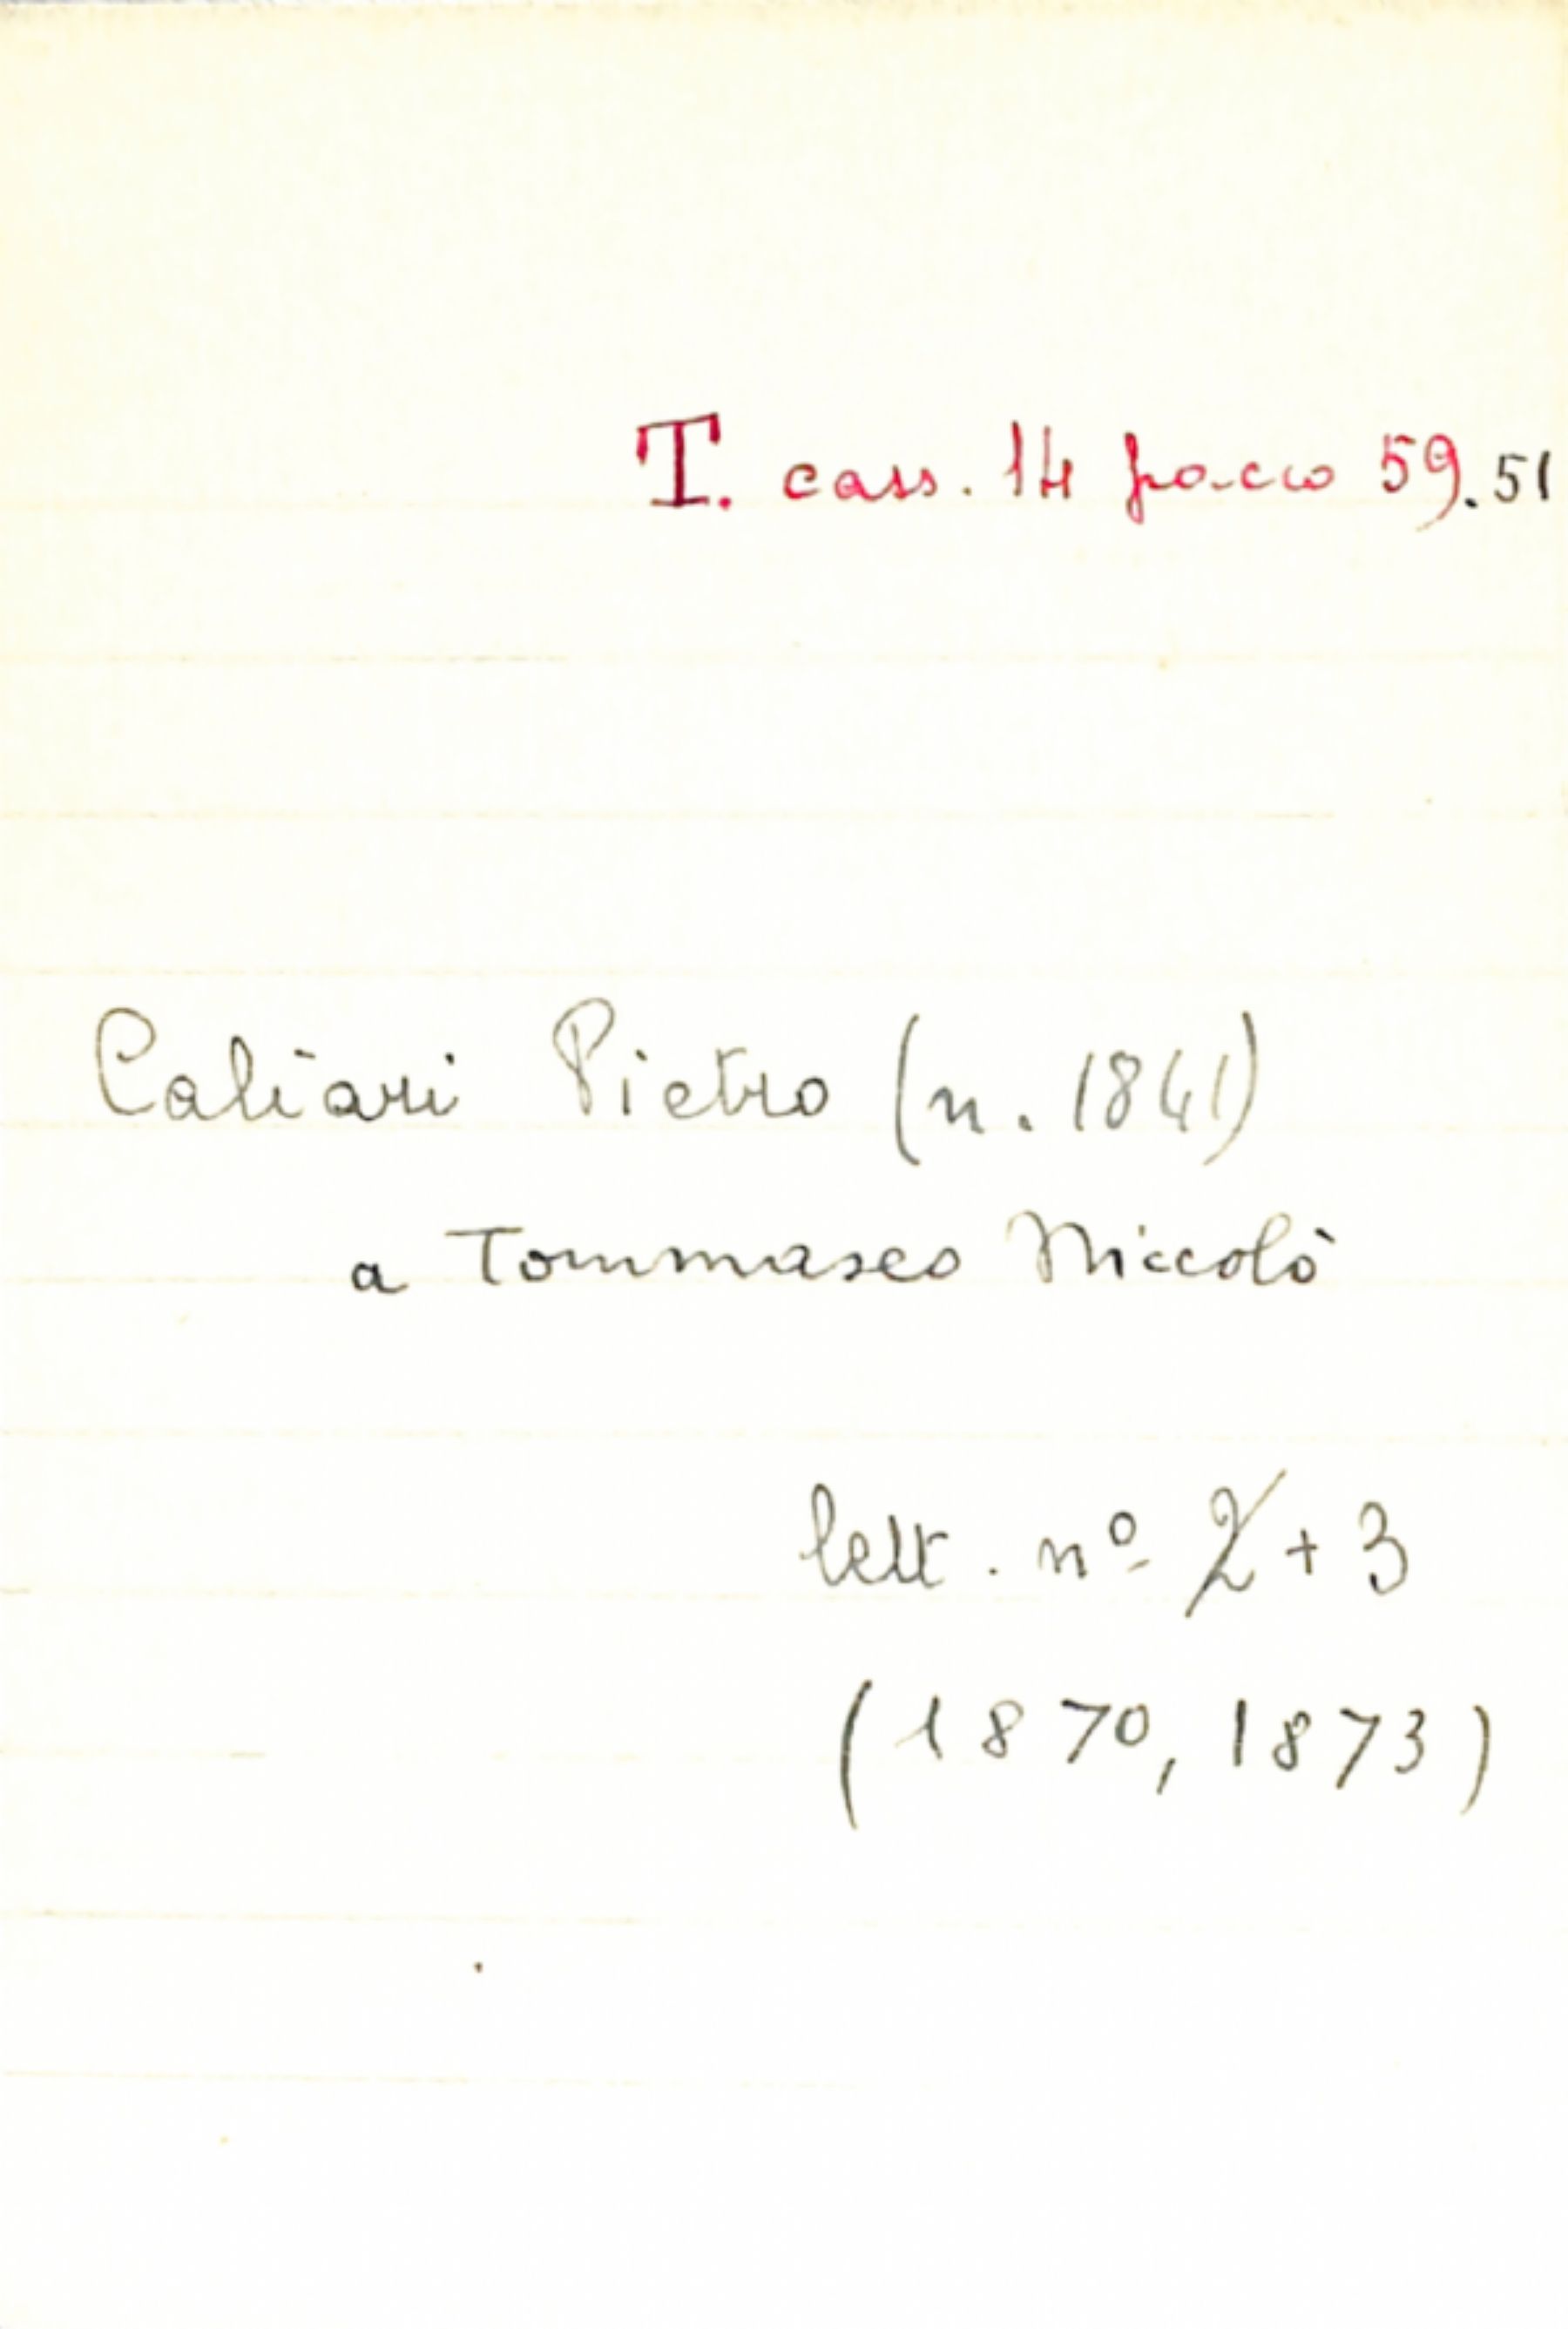 T. cass. 14 pacco 59.51
Caliari Pietro (n. 1841)
a Tommaseo Niccolò
lett. nº 2 + 3
(1870, 1873)